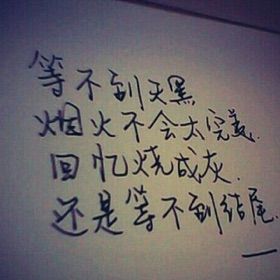 等不到天黑
烟火不会太完美.
回忆烧成灰.
还是等不到结尾.